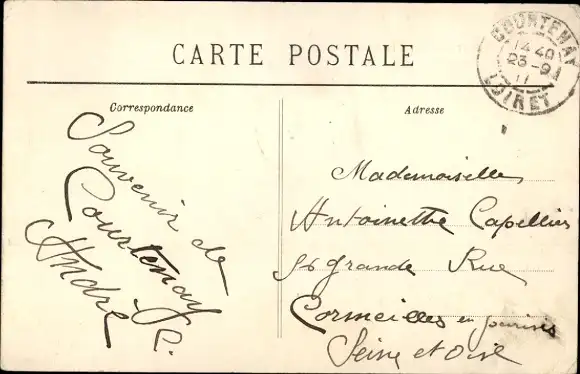 CARTE POSTALE
COURTENAY
14 40
23 - 9
11
LOIRET
Correspondance
Adresse
Souvenir de
Courtenay
André C.
Mademoiselle
Antoinette Capellier
96 grande Rue
Cormeilles en parisis
Seine et Oise